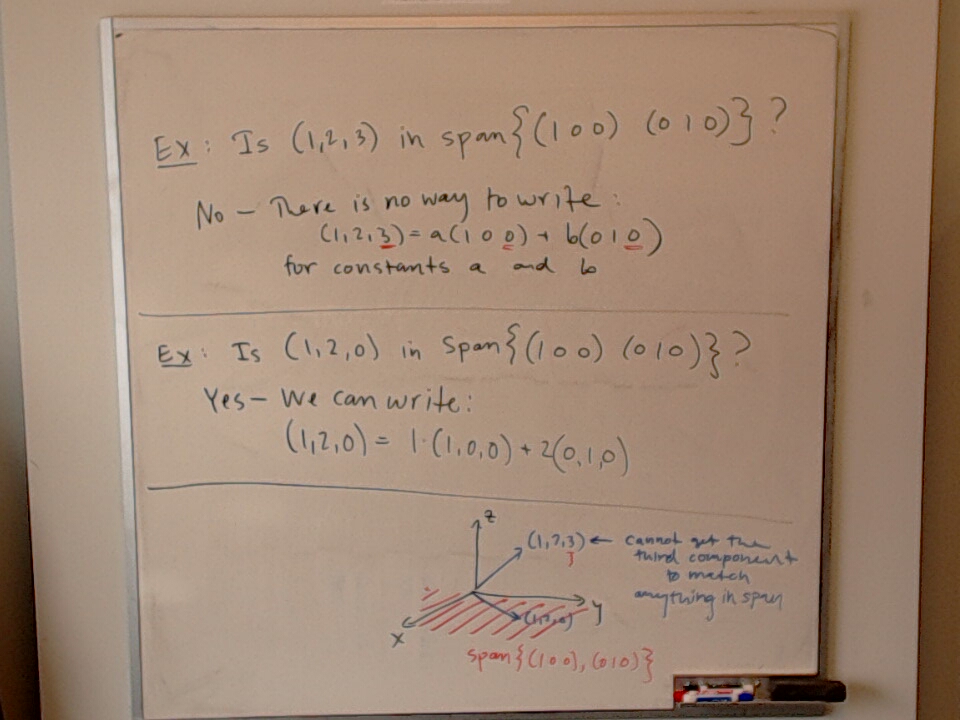 Ex: Is (1,2,3) in span{(1 0 0) (0 1 0)}?
No – There is no way to write:
(1,2,3) = a(1 0 0) + b(0 1 0)
for constants a and b
Ex: Is (1,2,0) in Span{(1 0 0) (0 1 0)}?
Yes – We can write:
(1,2,0) = 1·(1,0,0) + 2(0,1,0)
z
(1,2,3) ← cannot get the
third component
to match
anything in span
(1,2,0)
y
x
span{(1 0 0), (0 1 0)}